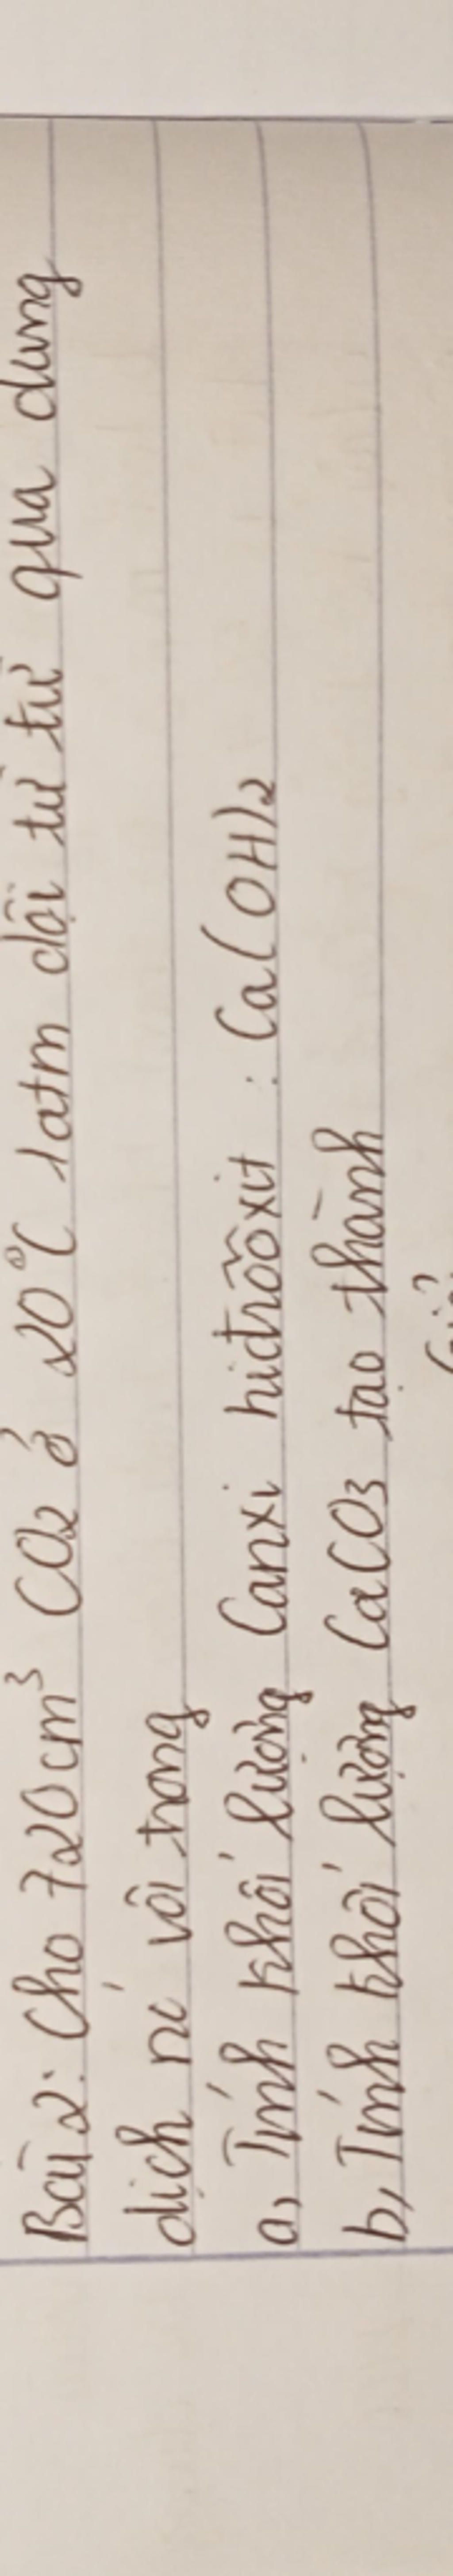 Bài 2: Cho 720cm³ CO2 ở 20°C 1atm dội từ từ qua dung
dịch nc' vôi trong
a, Tính khối lượng Canxi hiđrôôxit : Ca(OH)2
b, Tính khối lượng CaCO3 tạo thành